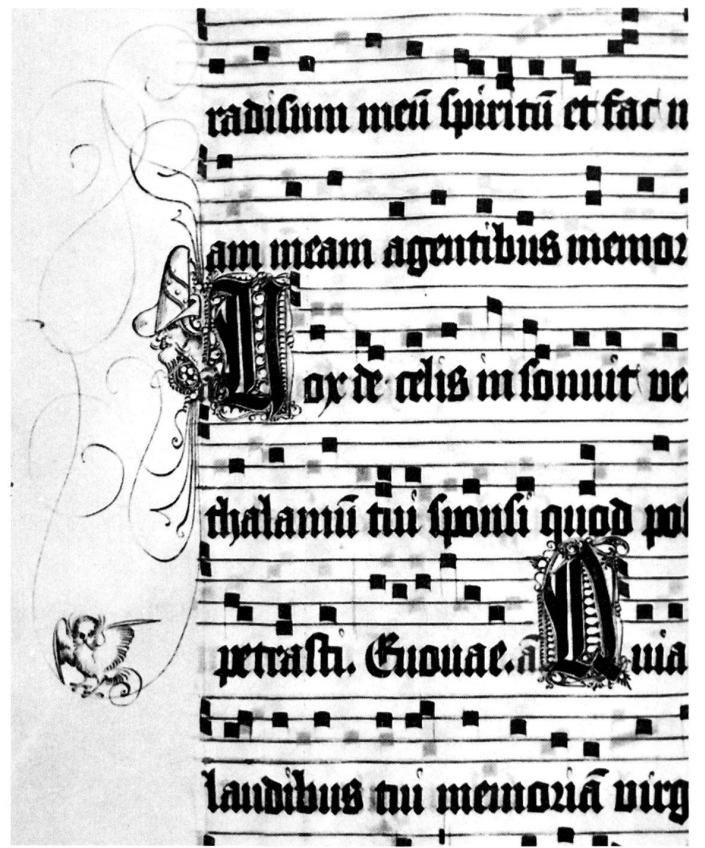 radisum meū spiritū et fac
am meam agentibus memor
Vox de celis in sonuit ve
thalamū tui sponsi quod pos
petrasti. Euouae. a Quia
laudibus tui memoriā virg